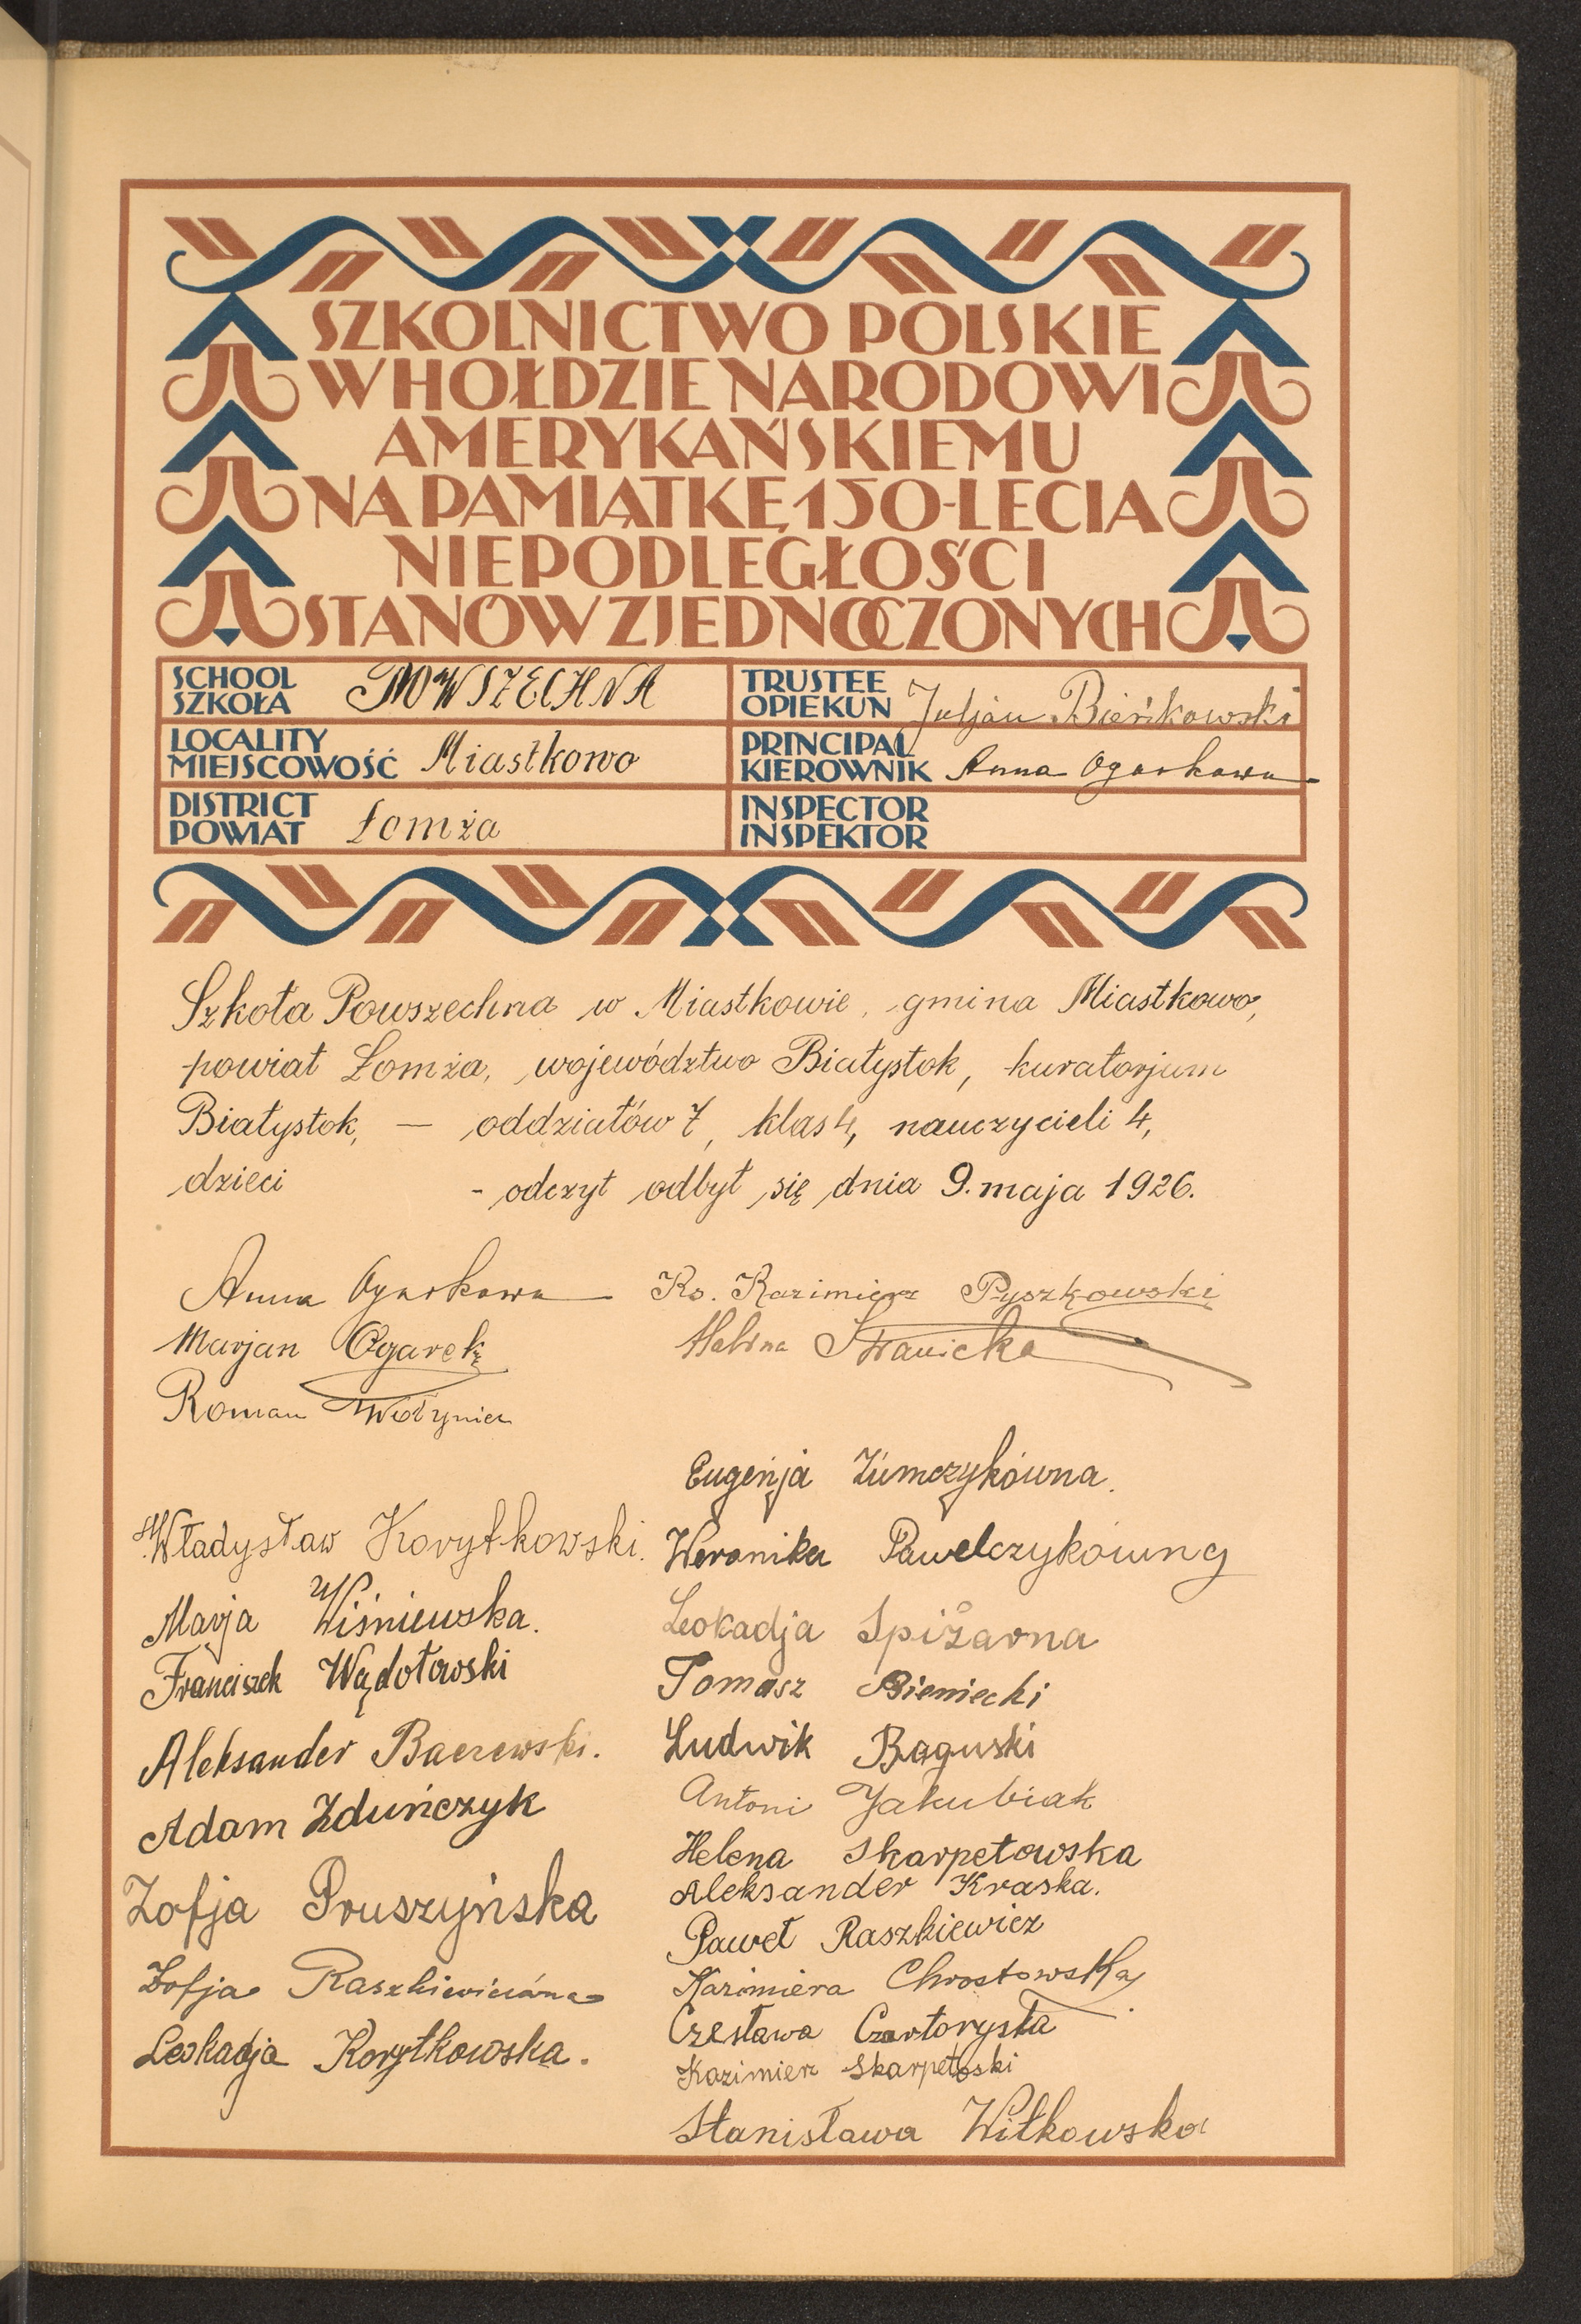 SZKOLNICTWO POLSKIE
W HOŁDZIE NARODOWI
AMERYKAŃSKIEMU
NA PAMIĄTKĘ 150-LECIA
NIEPODLEGŁOŚCI
STANÓW ZJEDNOCZONYCH
SCHOOL
SZKOŁA POWSZECHNA
TRUSTEE
OPIEKUN Juljan Bieńkowski
LOCALITY
MIEJSCOWOŚĆ Miastkowo
PRINCIPAL
KIEROWNIK Anna Ogarkowa
DISTRICT
POWIAT Łomża
INSPECTOR
INSPEKTOR
Szkoła Powszechna w Miastkowie, gmina Miastkowo,
powiat Łomża, województwo Białystok, kuratorjum
Białystok, — oddziałów 7, klas 4, nauczycieli 4,
dzieci - odczyt odbył się dnia 9. maja 1926.
Anna Ogarkowa
Marjan Ogarek
Roman Wołyniec
Ks. Kazimierz Pyszkowski
Halina
Władysław Korytkowski.
Marja Wiśniewska.
Franciszek Wądołowski
Aleksander Baczewski.
Adam Zduńczyk
Zofja Pruszyńska
Zofja Raszkiewiczówna
Leokadja Korytkowska.
Eugenja
Weronika Pawelczykówna
Leokadja Spiżarna
Tomasz Bieniecki
Ludwik Baguski
Antoni Jakubiak
Helena Skarpetowska
Aleksander Kraska.
Paweł Raszkiewicz
Kazimiera Chrostowska
Czesława Czartorysta
Kazimierz Skarpetoski
Stanisława Witkowska